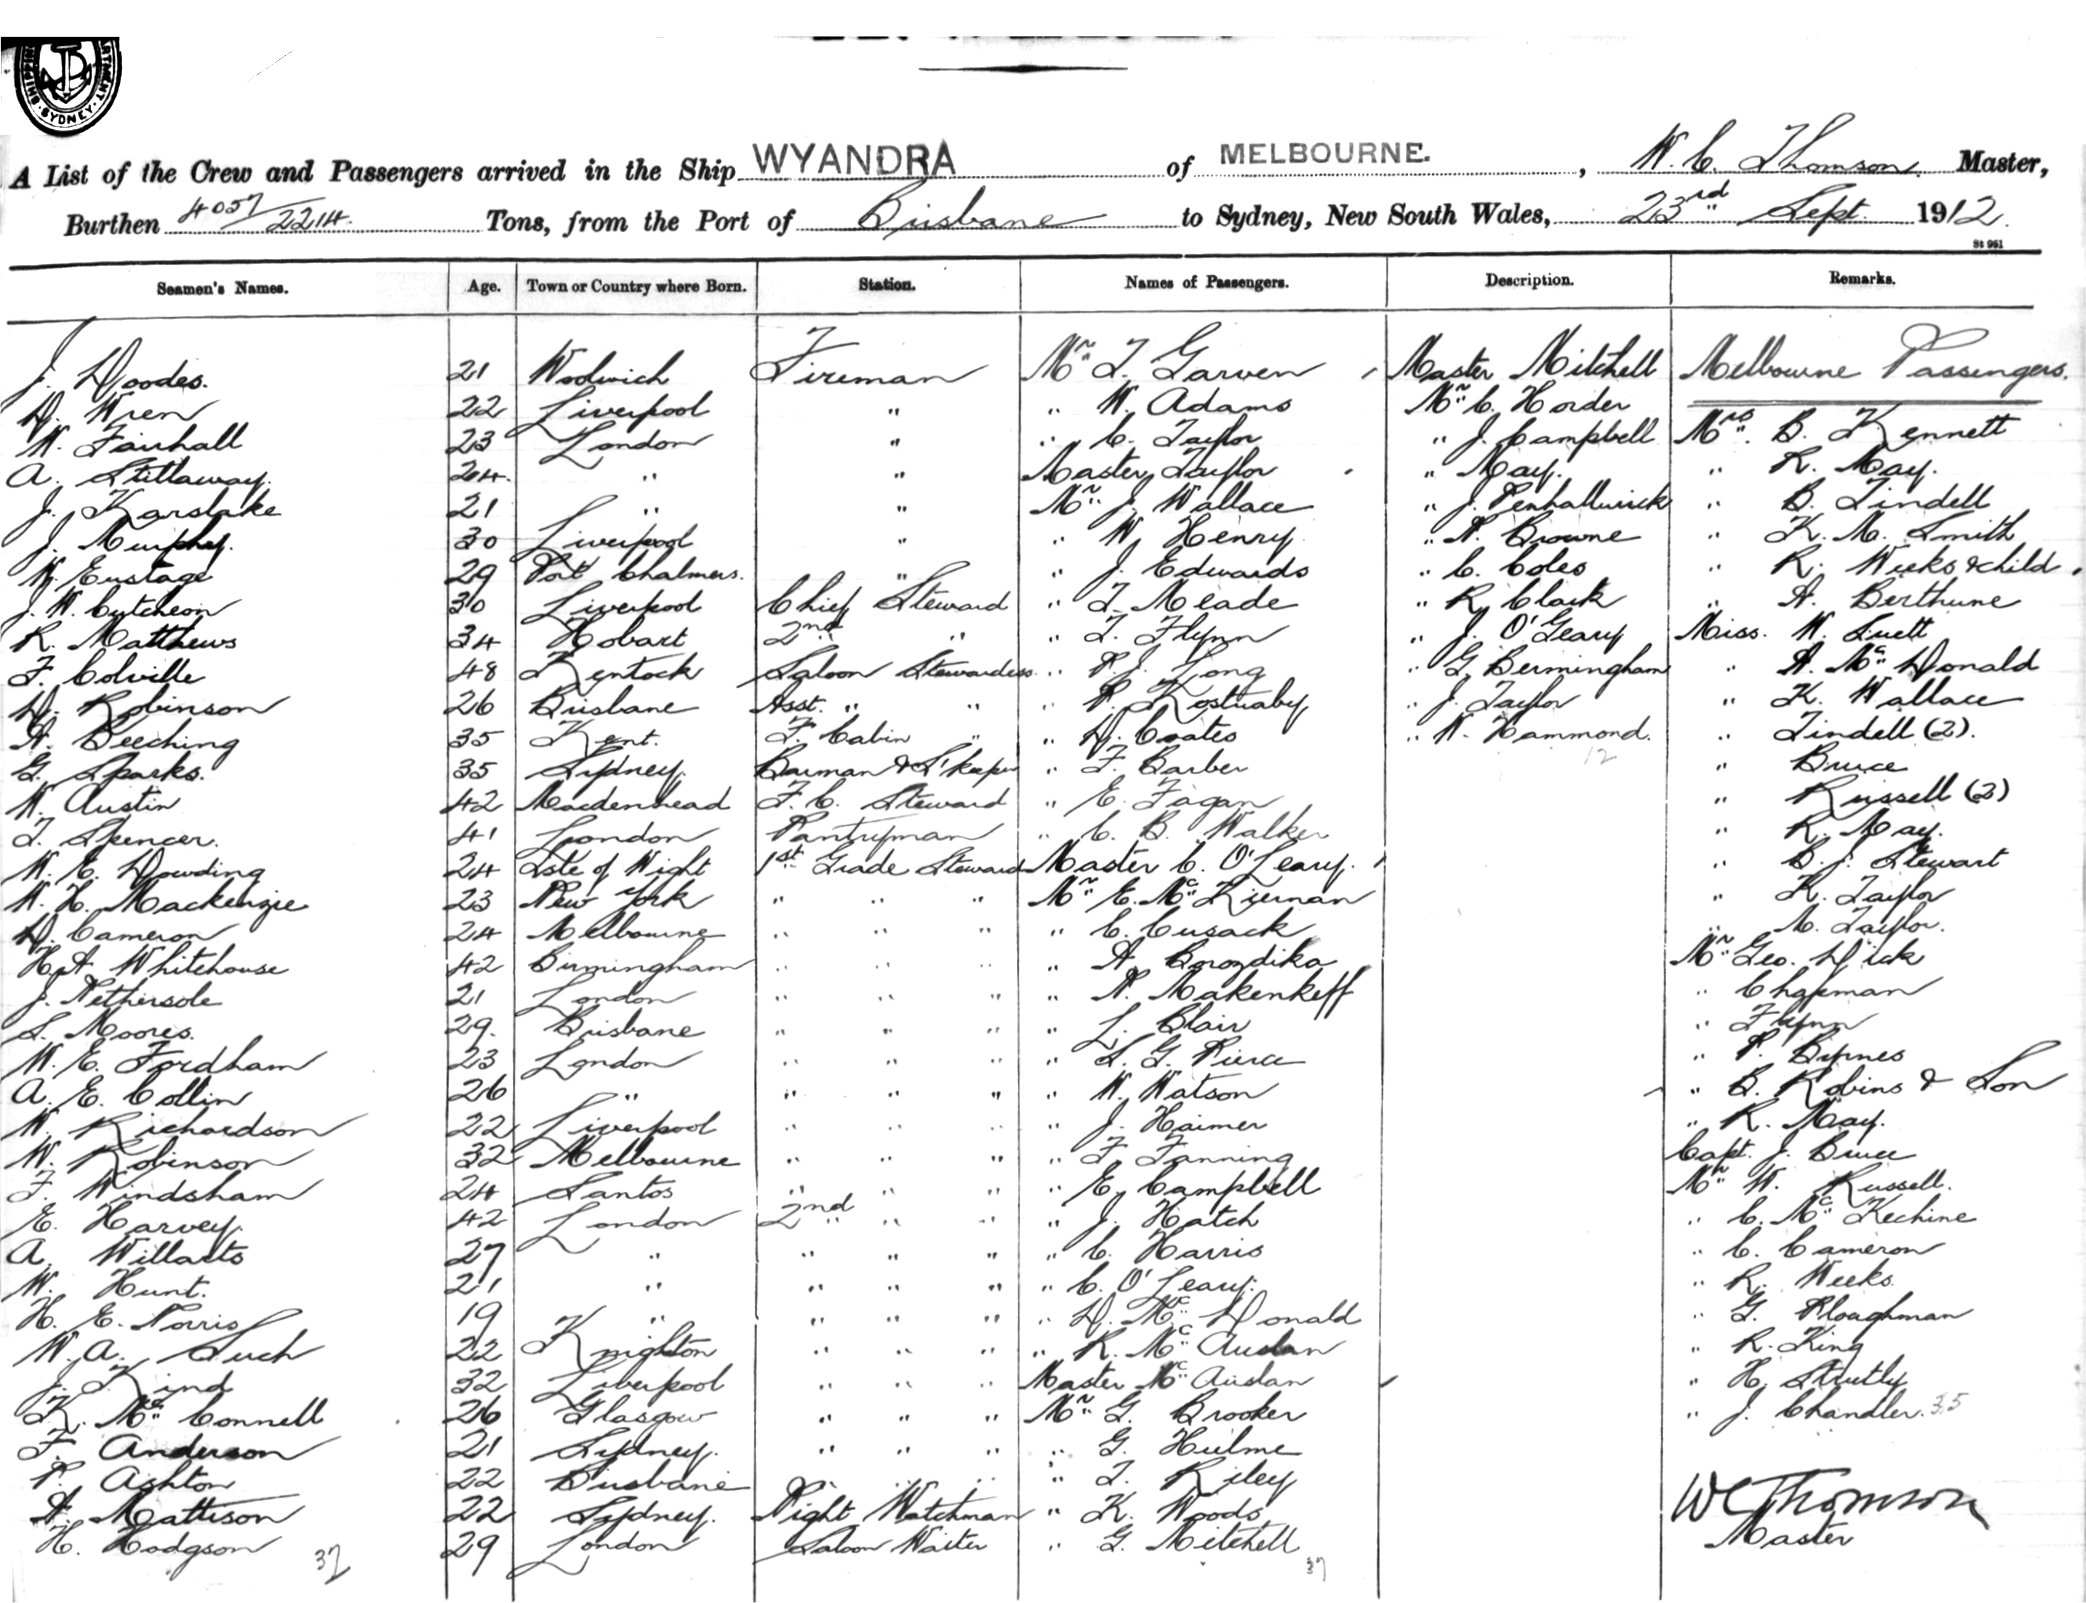 SYDNEY
A List of the Crew and Passengers arrived in the Ship WYANDRA of MELBOURNE. , W. C. Thomson. Master,
Burthen 4057/2214. Tons, from the Port of Brisbane to Sydney, New South Wales, 23rd Sept. 1912.
St 961
Seamen's Names. Age. Town or Country where Born. Station. Names of Passengers. Description. Remarks.
J. Doodes. 21 Woolwich Fireman Mr. T. Garven Master Mitchell Melbourne Passengers.
D. Wren 22 Liverpool " " W. Adams Mr. C. Horder
W. Fairhall 23 London " " C. Taylor " J. Campbell Mrs. B. Kennett
A. Stillaway. 24 " " Master Taylor " May. " R. May.
J. Karslake 21 " " Mr. J. Wallace " J. Penhallurick " B. Tindell
J. Murphy. 30 Liverpool " " W. Henry " A. Browne " K. M. Smith
W. Eustage 29 Port Chalmers. " " J. Edwards " C. Coles " R. Weeks & child
J. W. Cutcheon 30 Liverpool Chief Steward " T. Meade " R. Clark " A. Berthune
R. Matthews 34 Hobart 2nd " " T. Flynn " J. O'Geary Miss. W. Luett
F. Colville 48 Kentock Saloon Stewardess " P. J. Long " G. Bermingham " A. Mc. Donald
D. Robinson 26 Brisbane Asst. " " " P. Kostuaby " J. Taylor " K. Wallace
A. Beeching 35 Kent. F. Cabin " " D. Coates " W. Hammond. " Tindell (2).
G. Sparks. 35 Sydney. Barman & S'keeper " F. Barber 12 " Bruce
W. Austin 42 Maidenhead F. C. Steward " E. Fagan " Russell (2)
T. Spencer. 41 London Pantryman " C. B. Walker " R. May.
W. E. Dowding 24 Isle of Wight 1st Grade Steward Master C. O'Leary. " B. J. Stewart
W. H. Mackenzie 23 New York " " " Mr. E. Mc. Kiernan " K. Taylor
D. Cameron 24 Melbourne " " " " C. Cusack " M. Taylor.
H. A. Whitehouse 42 Birmingham " " " " A. Borozdika Mr. Geo. Dick
J. Nethersole 21 London " " " " N. Makenkeff " Chapman
S. Moores. 29. Brisbane " " " " L. Blair " Flynn
W. E. Fordham 23 London " " " " S. G. Pierce " P. Byrnes
A. E. Collin 26 " " " " " W. Watson " B. Robins & Son
W. Richardson 22 Liverpool " " " " J. Haimer " R. May.
W. Robinson 32 Melbourne " " " " F. Fanning Capt. J. Bruce
F. Windsham 24 Santos " " " " E. Campbell Mr. W. Russell.
E. Harvey. 42 London 2nd " " " " J. Hatch " C. Mc. Kechine
A. Willarts 27 " " " " " C. Harris " C. Cameron
W. Hunt. 21 " " " " " C. O'Leary. " R. Weeks
H. E. Norris 19 " " " " " D. Mc. Donald " G. Ploughman
W. A. Such 22 Knighton " " " " R. Mc. Auslan " R. King
J. Kind 32 Liverpool " " " Master Mc. Auslan " H. Strutly
K. Mc. Connell 26 Glasgow " " " Mr. G. Brooker " J. Chandler. 35
F. Anderson 21 Sydney. " " " " G. Hulme
P. Ashton 22 Brisbane " " " " T. Riley
A. Mattison 22 Sydney. Night Watchman " K. Woods WCThomson
H. Hodgson 29 London Saloon Waiter " G. Mitchell Master
37 37